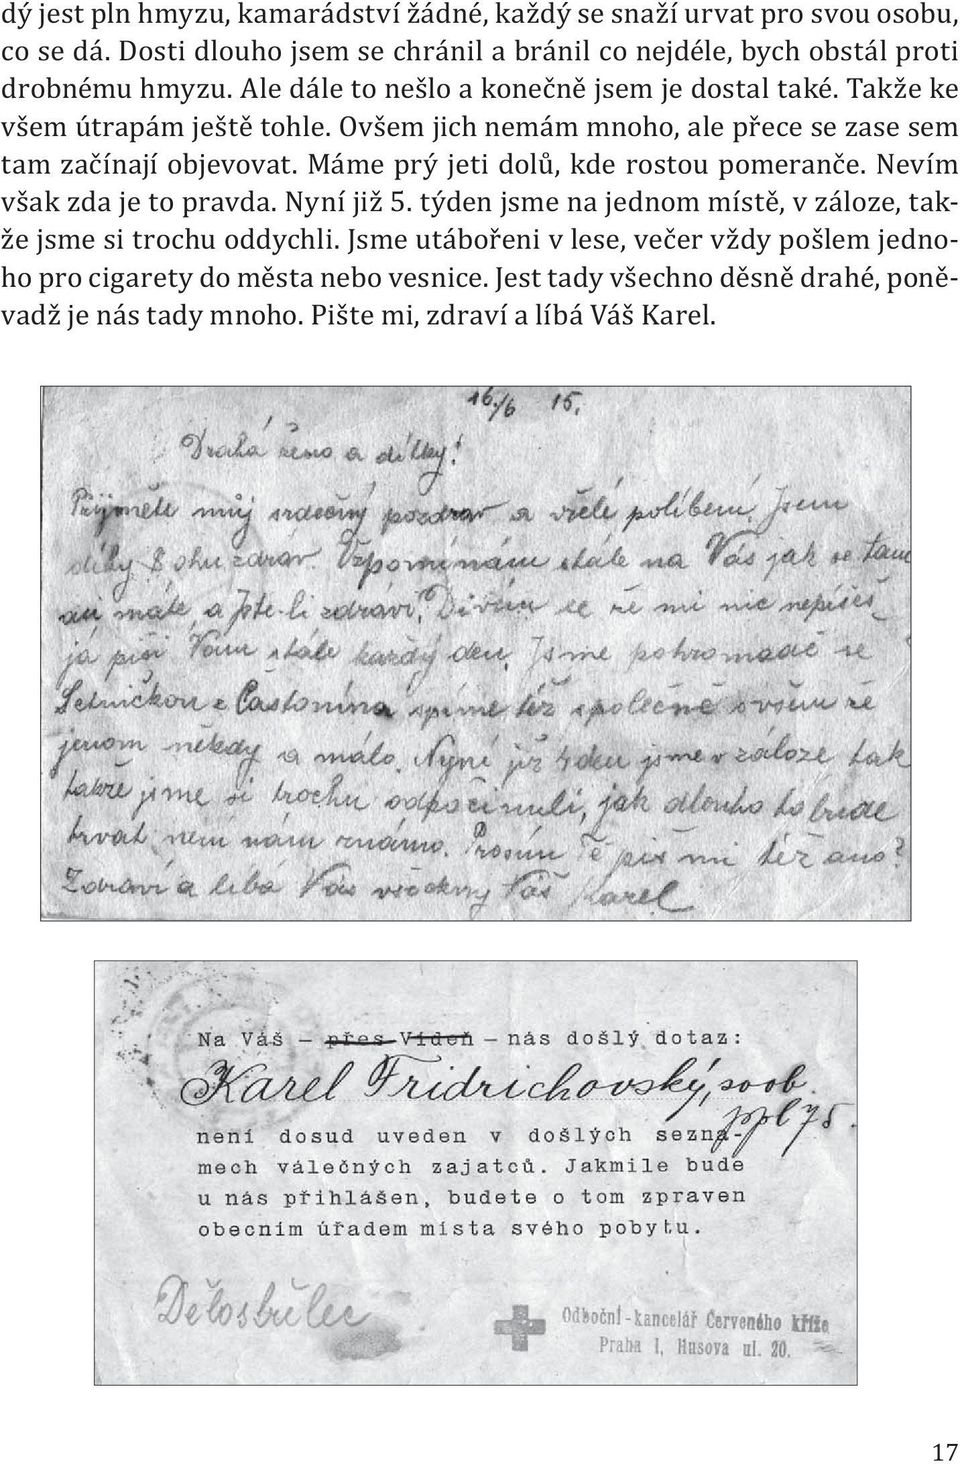 dý jest pln hmyzu, kamarádství žádné, každý se snaží urvat pro svou osobu,
co se dá. Dosti dlouho jsem se chránil a bránil co nejdéle, bych obstál proti
drobnému hmyzu. Ale dále to nešlo a konečně jsem je dostal také. Takže ke
všem útrapám ještě tohle. Ovšem jich nemám mnoho, ale přece se zase sem
tam začínají objevovat. Máme prý jeti dolů, kde rostou pomeranče. Nevím
však zda je to pravda. Nyní již 5. týden jsme na jednom místě, v záloze, tak-
že jsme si trochu oddychli. Jsme utábořeni v lese, večer vždy pošlem jedno-
ho pro cigarety do města nebo vesnice. Jest tady všechno děsně drahé, poně-
vadž je nás tady mnoho. Pište mi, zdraví a líbá Váš Karel.
16./6 15.
Drahá ženo a dítky!
Přijměte můj srdečný pozdrav a vřelé políbení. Jsem
díky Bohu zdráv. Vzpomínám stále na Vás jak se tam
asi máte, a jste-li zdrávi. Divím se že mi nic nepíšeš
já píši Vám stále každý den. Jsme pohromadě se
Setničkou z Častonína spíme též společně ovšem že
jenom někdy a málo. Nyní již 4 den jsme v záloze tak
takže jsme si trochu odpočinuli, jak dlouho to bude
trvat není nám známo. Prosím Tě piš mi též ano?
Zdraví a líbá Vás všechny Váš Karel
Na Váš – přes Vídeň – nás došlý dotaz:
Karel Fridrichovský, soob.
ppl 75.
není dosud uveden v došlých sezna-
mech válečných zajatců. Jakmile bude
u nás přihlášen, budete o tom zpraven
obecním úřadem místa svého pobytu.
Dělosbůlec
Odboční-kancelář Červeného kříže
Praha I, Husova ul. 20.
17